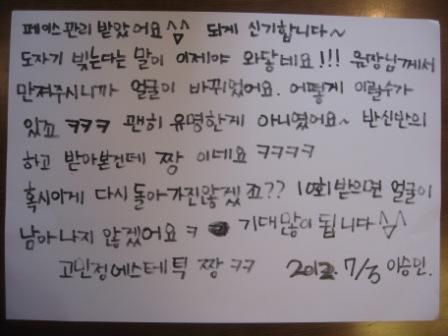 페이스관리 받았어요^^ 되게 신기합니다~
도자기 빚는다는 말이 이제야 와닿네요!!! 원장님께서
만져주시니까 얼굴이 바뀌었어요. 어떻게 이럴수가
있죠 ㅋㅋㅋ 괜히 유명한게 아니였어요~ 반신반의
하고 받아봤건데 짱 이네요 ㅋㅋㅋㅋ
혹시이게 다시 돌아가진않겠죠?? 10회받으면 얼굴이
남아나지 않겠어요 ㅋ 기대많이 됩니다^^
고민정에스테틱 짱 ㅋㅋ 2012. 7/3 이승민.